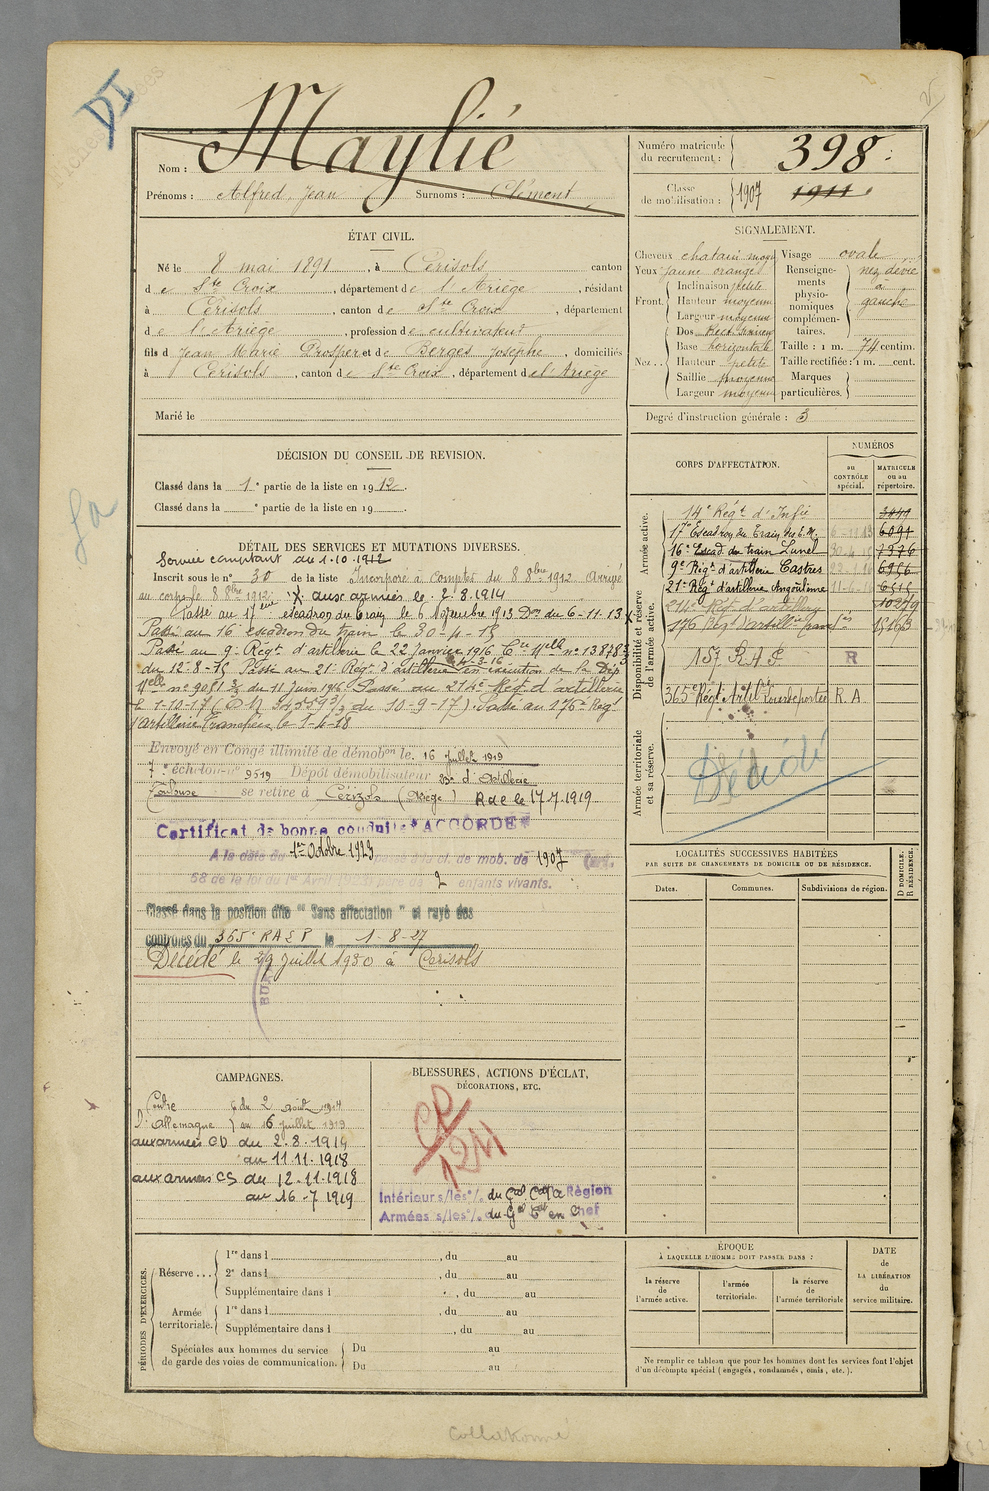 DI
Nom : Maylié
Prénoms : Alfred Jean Surnoms : Clément
Numéro matricule du recrutement : 398
Classe de mobilisation : 1907 1911
ÉTAT CIVIL.
Né le 8 mai 1891, à Cérisols canton
de Ste Croix, département de l'Ariège, résidant
à Cérisols, canton de Ste Croix, département
de l'Ariège, profession de cultivateur
fils de Jean Marie Prosper et de Berges Josèphe, domiciliés
à Cérisols, canton de Ste Croix, département de l'Ariège
Marié le
SIGNALEMENT.
Cheveux chatain moy Visage ovale
Yeux jaune orangé
Front. Inclinaison petite
Hauteur moyenne
Largeur moyenne
Nez... Dos Rect.
Base horizontale
Hauteur petite
Saillie moyenne
Largeur moyenne
Renseignements physionomiques complémentaires. nez dévié à gauche
Taille : 1 m. 74 centim.
Taille rectifiée : 1 m. cent.
Marques particulières.
Degré d'instruction générale : 3
DÉCISION DU CONSEIL DE REVISION.
Classé dans la 1e partie de la liste en 1912.
Classé dans la e partie de la liste en 19
CORPS D'AFFECTATION.
NUMÉROS
au CONTRÔLE spécial.
MATRICULE ou au répertoire.
Armée active.
14e Régt d'Infie
17e Escadron du Train des E. M. 6-11-13 6094
16e Escad. du train Lunel 30-4-15 7376
9e Régt d'artillerie Castres 22-1-16 6956
21e Régt d'artillerie Angoulême 11-6-16 6515
Disponibilité et réserve de l'armée active.
274e Régt d'artillerie 10249
176 Régt d'artillerie
157 R.A.P. R
365e Régt Artie Lourde portée R. A.
Armée territoriale et sa réserve.
Décédé
DÉTAIL DES SERVICES ET MUTATIONS DIVERSES.
Service comptant du 1-10-1912
Inscrit sous le n° 30 de la liste Incorporé à compter du 8 8bre 1912 arrivé
au corps le 8 8bre 1912. X aux armées le 2.8.1914
Passé au 17eme escadron du train le 6 Novembre 1913 Don du 6-11-13 X
Passé au 16 escadron du train le 30-4-15
Passé au 9e Régt d'artillerie le 22 janvier 1916 Cre Mlle n° 13878 3/3
du 12-8-15 Passé au 21e Régt d'artillerie en exécution de la Dép
Mlle n° 9051 3/3 du 11 juin 1916 Passé au 274e Régt d'artillerie
le 1-10-17 (D.M. 34559 3/3 du 10-9-17). Passé au 176e Régt
d'artillerie Tranchées le 1-4-18
Envoyé en Congé illimité de démobon le 16 juillet 1919
7e échelon n° 9519 Dépôt démobilisateur d'Artillerie
Toulouse se retire à Cérizols (Ariège) R de le 17.7.1919
Certificat de bonne conduite "ACCORDÉ"
A la date du 1er Octobre 1923 passé à la cl. de mob. de 1907 (art.
58 de la loi du 1er Avril 1923) père de 2 enfants vivants.
Classé dans la position dite "Sans affectation" et rayé des
contrôles du 365e RALP le 1-8-27
Décédé le 29 juillet 1930 à Cérisols
LOCALITÉS SUCCESSIVES HABITÉES
PAR SUITE DE CHANGEMENTS DE DOMICILE OU DE RÉSIDENCE.
Dates. Communes. Subdivisions de région. D DOMICILE. R RÉSIDENCE.
CAMPAGNES.
Contre l'Allemagne du 2 août 1914
au 16 juillet 1919
aux armées CD du 2.8.1914
au 11.11.1918
aux armées CS du 12-11-1918
au 16-7-1919
BLESSURES, ACTIONS D'ÉCLAT,
DÉCORATIONS, ETC.
Intérieur s/les o/. du Gal Cdt la Région
Armées s/les o/. du Gal Cdt en Chef
PÉRIODES D'EXERCICES.
Réserve... 1re dans l , du au
2e dans l , du au
Supplémentaire dans l , du au
Armée territoriale. 1re dans l , du au
Supplémentaire dans l , du au
Spéciales aux hommes du service de garde des voies de communication. Du au
Du au
ÉPOQUE
À LAQUELLE L'HOMME DOIT PASSER DANS :
la réserve de l'armée active.
l'armée territoriale.
la réserve de l'armée territoriale
DATE de LA LIBÉRATION du service militaire.
Ne remplir ce tableau que pour les hommes dont les services font l'objet
d'un décompte spécial (engagés, condamnés, omis, etc.).